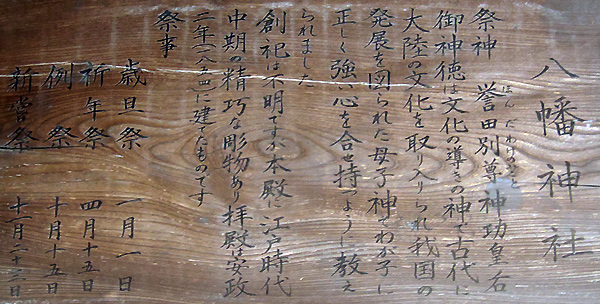 八幡神社
祭神 誉田別尊 神功皇后
ほんだわけのみこと
御神徳は文化の導きの神で古代に
大陸の文化を取り入られ我国の
発展を図られた母子神でわが子に
正しく強い心を合せ持つように教え
られました
創祀は不明ですが本殿に江戸時代
中期の精巧な彫物あり拝殿は安政
二年(一八五四)に建てたものです
祭事
歳旦祭 一月一日
祈年祭 四月十五日
例祭 十月十五日
新嘗祭 十一月二十三日